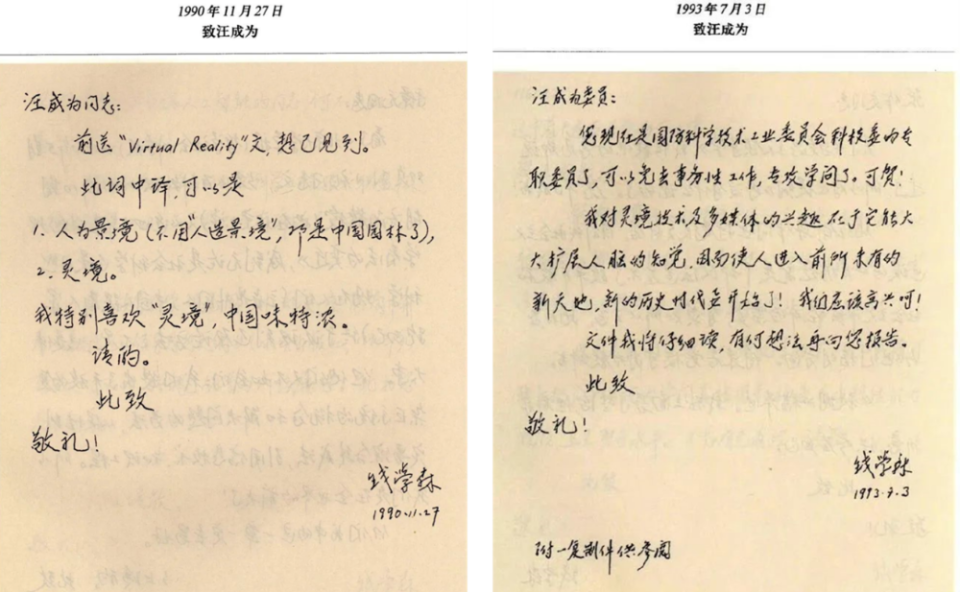 1990年11月27日
致汪成为
汪成为同志：
前送“Virtual Reality”文，想已见到。
此词中译，可以是
1. 人为景境（不用“人造景境”，那是中国园林了），
2. 灵境。
我特别喜欢“灵境”，中国味特浓。
请酌。
此致
敬礼！
钱学森
1990.11.27
1993年7月3日
致汪成为
汪成为委员：
您现在是国防科学技术工业委员会科技委的专
职委员了，可以免去事务性工作，专攻学问了。可贺！
我对灵境技术及多媒体的兴趣在于它能大
大扩展人脑的知觉，因而使人进入前所未有的
新天地，新的历史时代要开始了！我们应该高兴呵！
文件我将仔细读，有何想法再向您报告。
此致
敬礼！
钱学森
1993.7.3
附一复制件供参阅